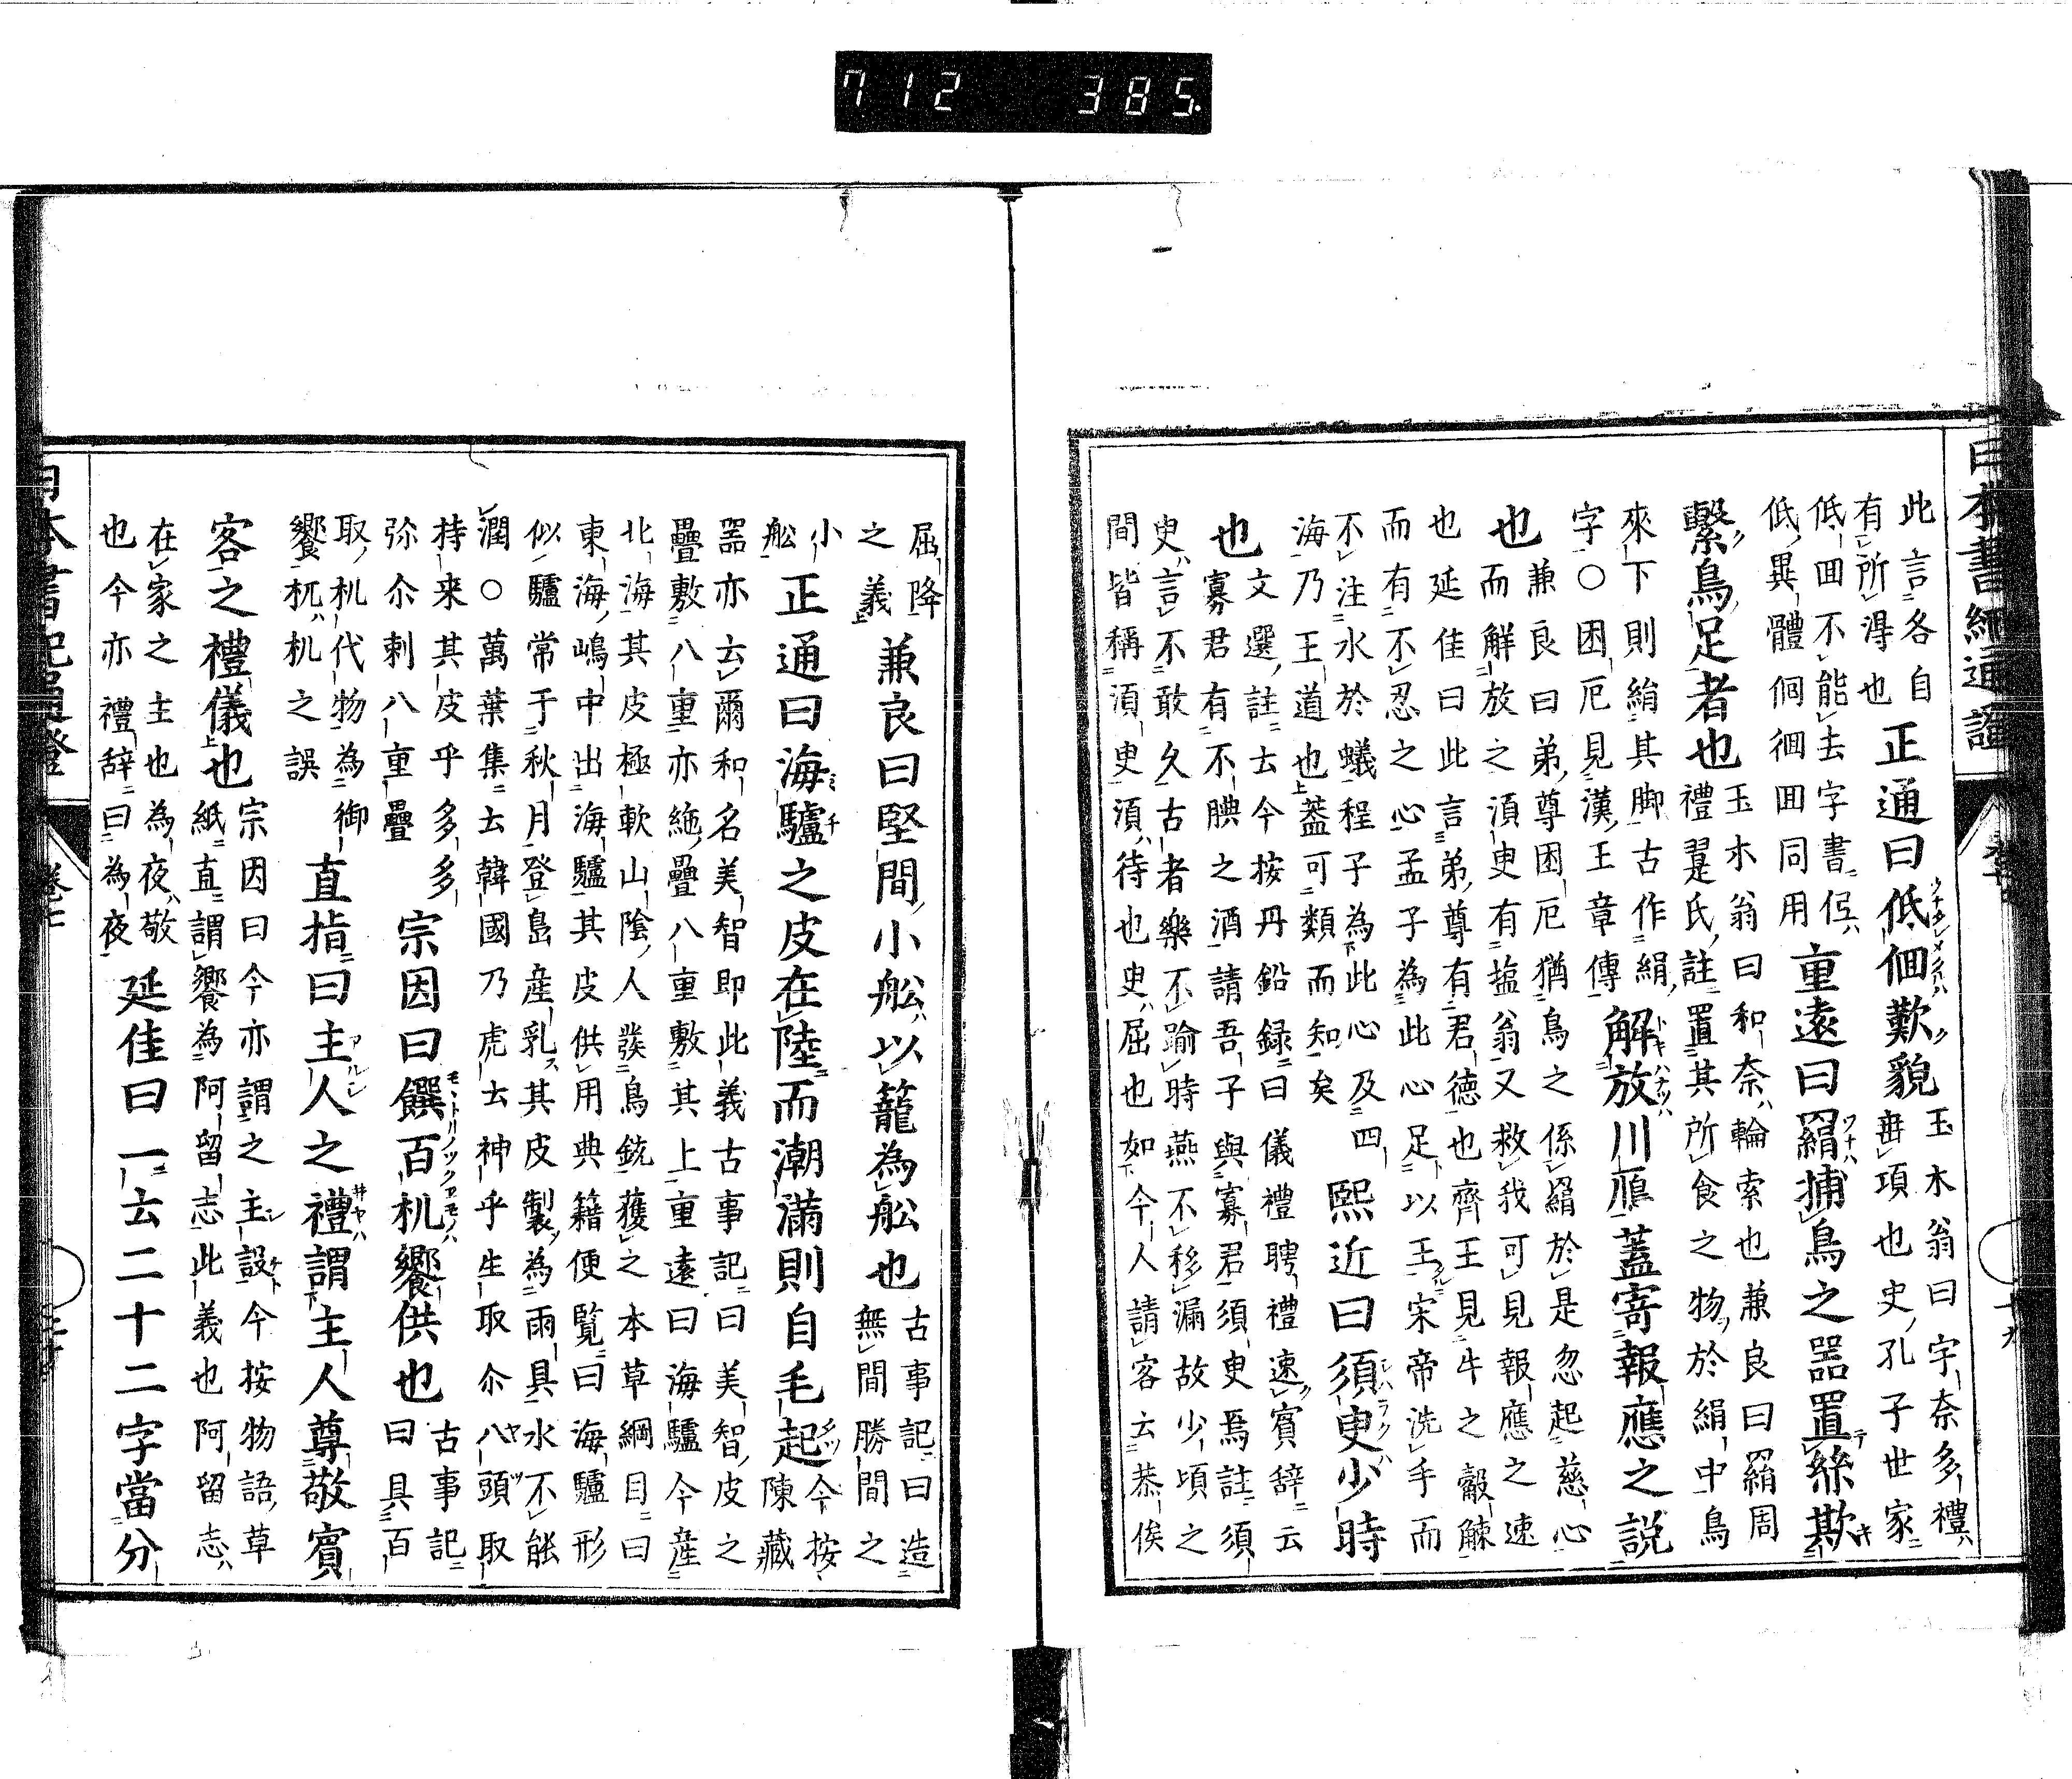 712 385
日本書紀通證
此言各自
有所得也
正通曰低佪歎貌
玉木翁曰字奈多禮
垂項也史孔子世家
低回不能去字書伹
低異體佪徊回同用
重遠曰羂捕鳥之器置絲欺
繫鳥足者也
玉木翁曰和奈輪索也兼良曰羂周
禮翨氏註置其所食之物於絹中鳥
來下則絹其脚古作絹
字○困厄見漢王章傳
解放川鴈蓋寄報應之説
也
兼良曰弟尊困厄猶鳥之係羂於是忽起慈心
而解放之湏臾有塩翁又救我可見報應之速
也延佳曰此言弟尊有君德也齊王見牛之觳觫
而有不忍之心孟子為此心足以王宋帝洗手而
不注水於蟻程子為此心及四
海乃王道也蓋可類而知矣
熙近曰須臾少時
也
文選註云今按丹鉛録曰儀禮聘禮速賓辞云
寡君有不腆之酒請吾子與寡君須臾焉註須
臾言不敢久古者樂不踰時燕不移漏故少頃之
間皆稱湏臾湏待也臾屈也如今人請客云恭俟
十九
屈降
之義
兼良曰堅間小舩以籠為舩也
古事記曰造
無間勝間之
小
舩
正通曰海驢之皮在陸而潮滿則自毛起
今按
陳藏
器亦云爾和名美智即此義古事記曰美智皮之
疊敷八重亦絁疊八重敷其上重遠曰海驢今產
北海其皮極軟山陰人發鳥銃獲之本草綱目曰
東海嶋中出海驢其皮供用典籍便覧曰海驢形
似驢常于秋月登島產乳其皮製為雨具水不能
潤○萬葉集云韓國乃虎云神乎生取尒八頭取
持来其皮乎多多
弥尒刺八重疊
宗因曰饌百机饗供也
古事記
曰具百
取机代物為御
饗机机之誤
直指曰主人之禮謂主人尊敬賓
客之禮儀也
宗因曰今亦謂之主設今按物語草
紙直謂饗為阿留志此義也阿留志
在家之主也為夜敬
也今亦禮辞曰為夜
延佳曰一云二十二字當分
日本書紀通證
卷七
二十